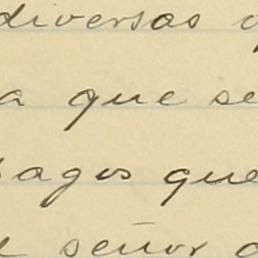 diversas
a que se
agos que
señor